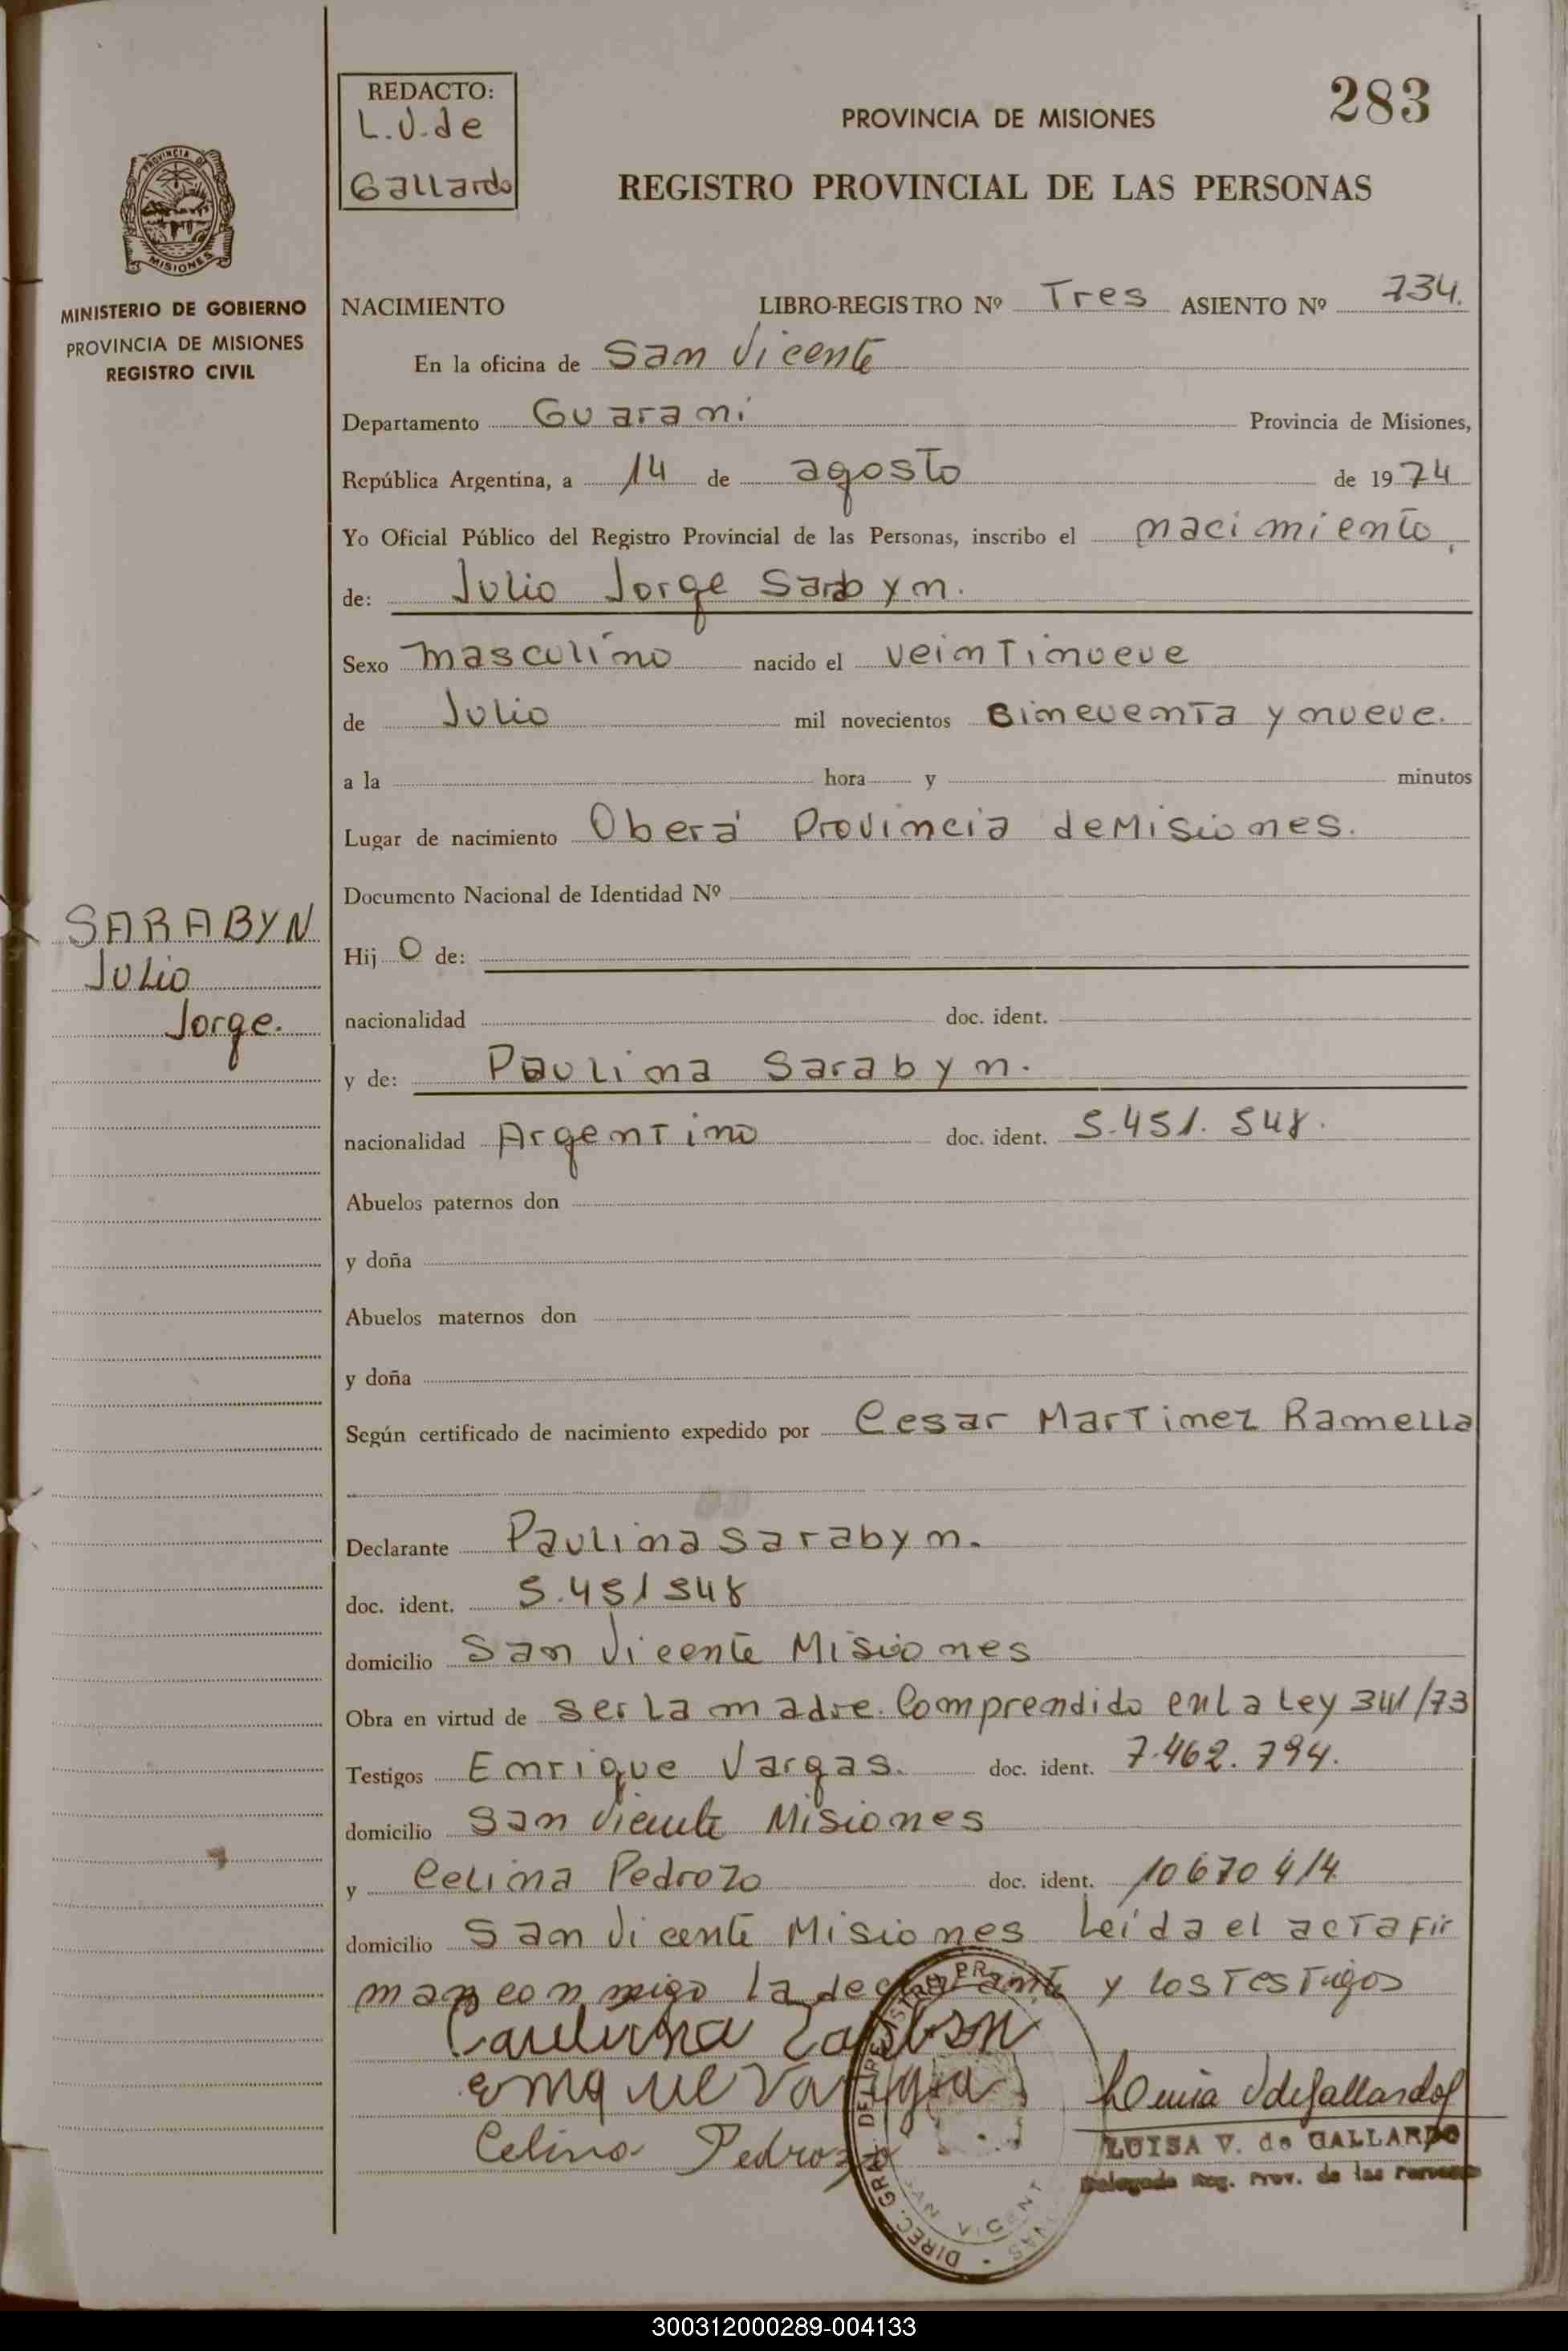 REDACTO:
L.V. de
Gallardo
PROVINCIA DE MISIONES
283
REGISTRO PROVINCIAL DE LAS PERSONAS
PROVINCIA DE
MISIONES
MINISTERIO DE GOBIERNO
PROVINCIA DE MISIONES
REGISTRO CIVIL
NACIMIENTO LIBRO-REGISTRO Nº Tres ASIENTO Nº 734.
En la oficina de San Vicente
Departamento Guarani Provincia de Misiones,
República Argentina, a 14 de agosto de 1974
Yo Oficial Público del Registro Provincial de las Personas, inscribo el nacimiento,
de: Julio Jorge Sarabyn.
Sexo masculino nacido el veintinueve
de Julio mil novecientos cincuenta y nueve.
a la hora y minutos
Lugar de nacimiento Oberá Provincia de Misiones.
Documento Nacional de Identidad Nº
SARABYN
Julio
Jorge.
Hij o de:
nacionalidad doc. ident.
y de: Paulina Sarabyn.
nacionalidad Argentino doc. ident. 5.451.548.
Abuelos paternos don
y doña
Abuelos maternos don
y doña
Según certificado de nacimiento expedido por Cesar Martinez Ramella
Declarante Paulina Sarabyn.
doc. ident. 5.451548
domicilio San Vicente Misiones
Obra en virtud de ser la madre. Comprendido en la Ley 341/73
Testigos Enrique Vargas. doc. ident. 7.462.794.
domicilio San Vicente Misiones
y Celina Pedrozo doc. ident. 10670414
domicilio San Vicente Misiones Leída el acta fir
man conmigo la declarante y los testigos
Enrique Vargas
Celina Pedrozo
Luisa V de Gallardo
LUISA V. de GALLARDO
Delegada Reg. Prov. de las Personas
DIREC. GRAL. DEL REGISTRO PR
SAN VICENT
300312000289-004133